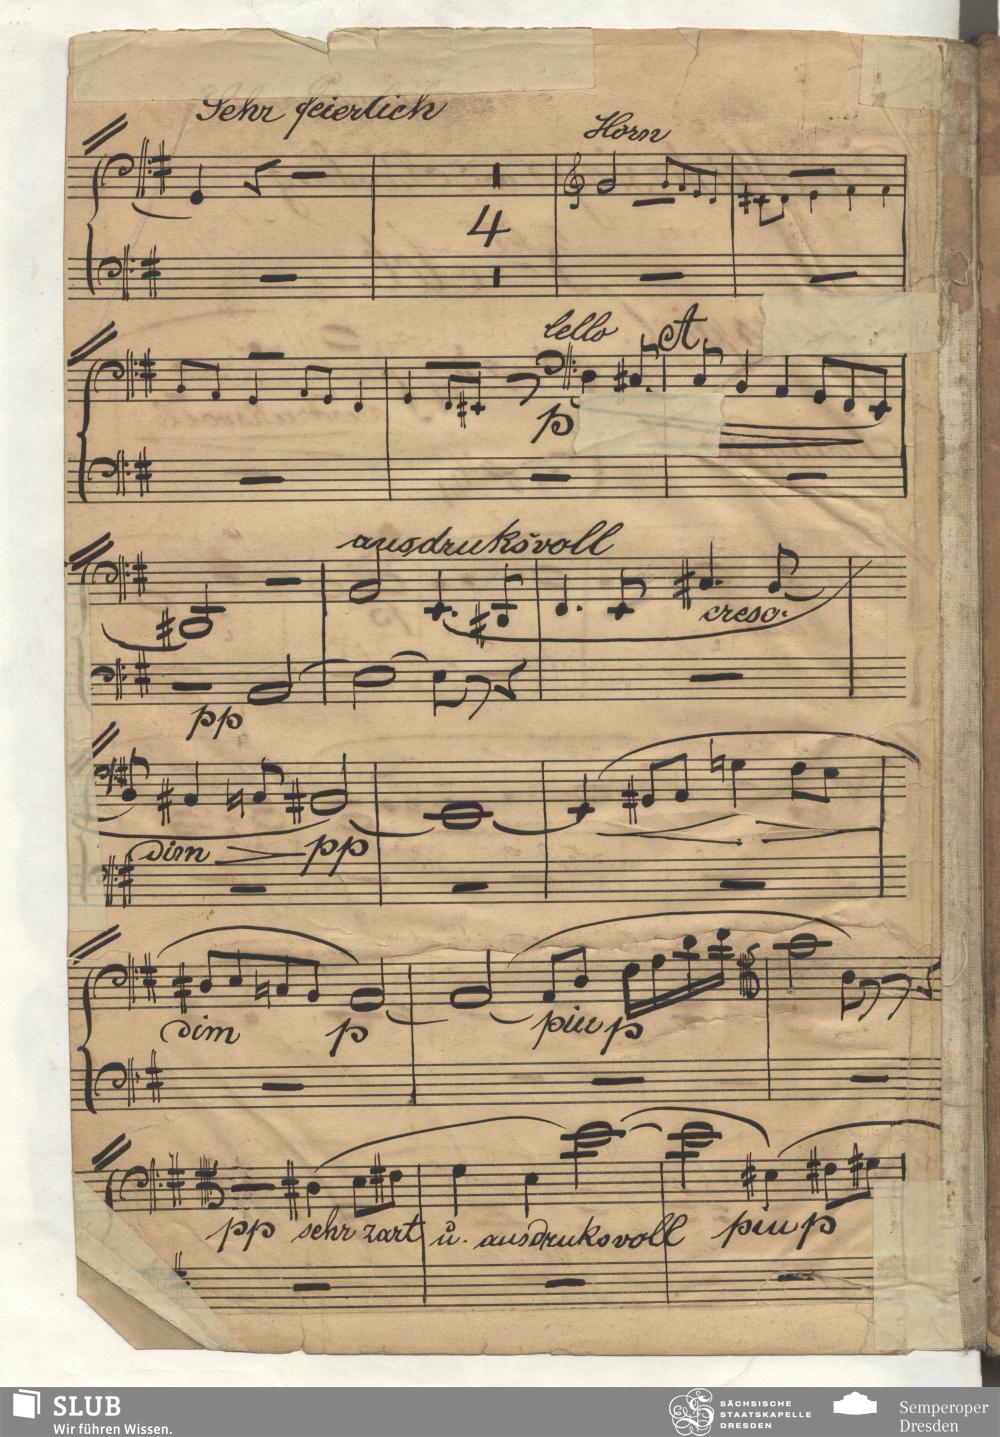 Sehr feierlich
Horn
4
Cello A
p
ausdruksvoll
cresc.
pp
dim pp
dim p piu p
pp sehr zart u. ausdruksvoll piu p
SLUB
Wir führen Wissen.
SÄCHSISCHE
STAATSKAPELLE
DRESDEN
Semperoper
Dresden